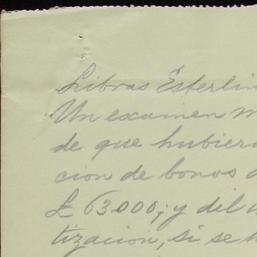 Libras Esterlin
Un examen m
de que hubier
cion de bonos d
£ 63.000; y del
tizacion, si se h